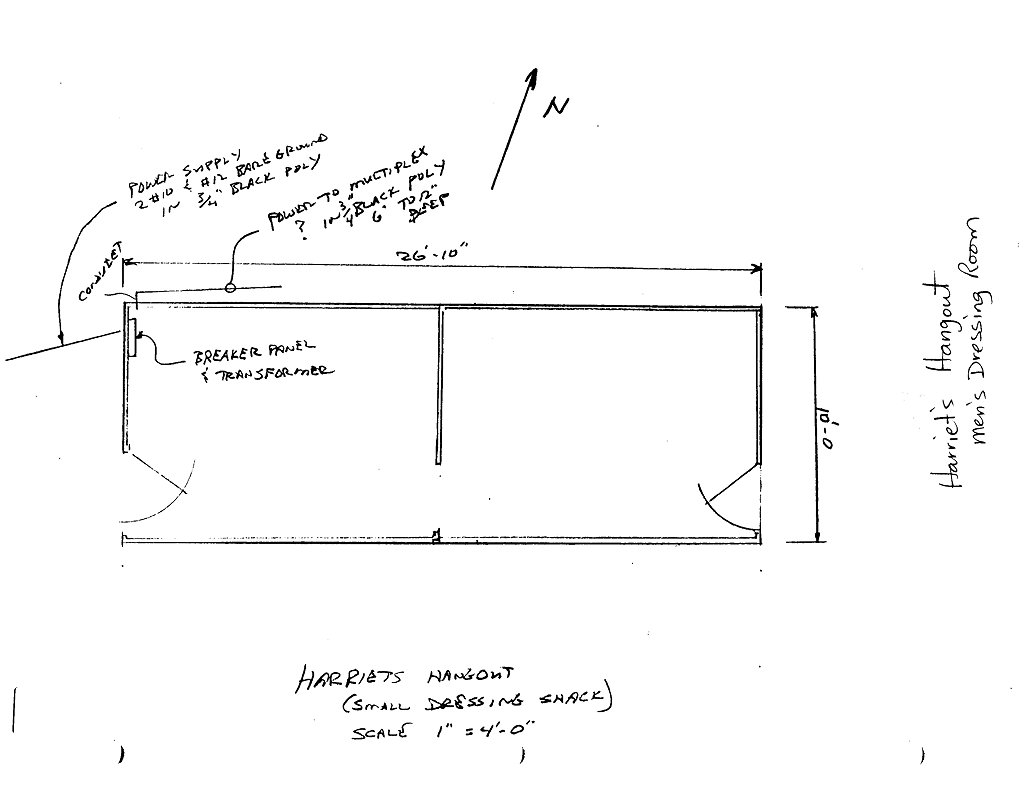 N
POWER SUPPLY
2 #10 & #12 BARE GROUND
IN 3/4" BLACK POLY
POWER TO MULTIPLEX
? IN 3/4" BLACK POLY
6" TO 12"
DEEP
CONDUIT
26'-10"
BREAKER PANEL
& TRANSFORMER
10'-0
Harriet's Hangout
Men's Dressing Room
HARRIETS HANGOUT
(SMALL DRESSING SHACK)
SCALE 1" = 4'-0"